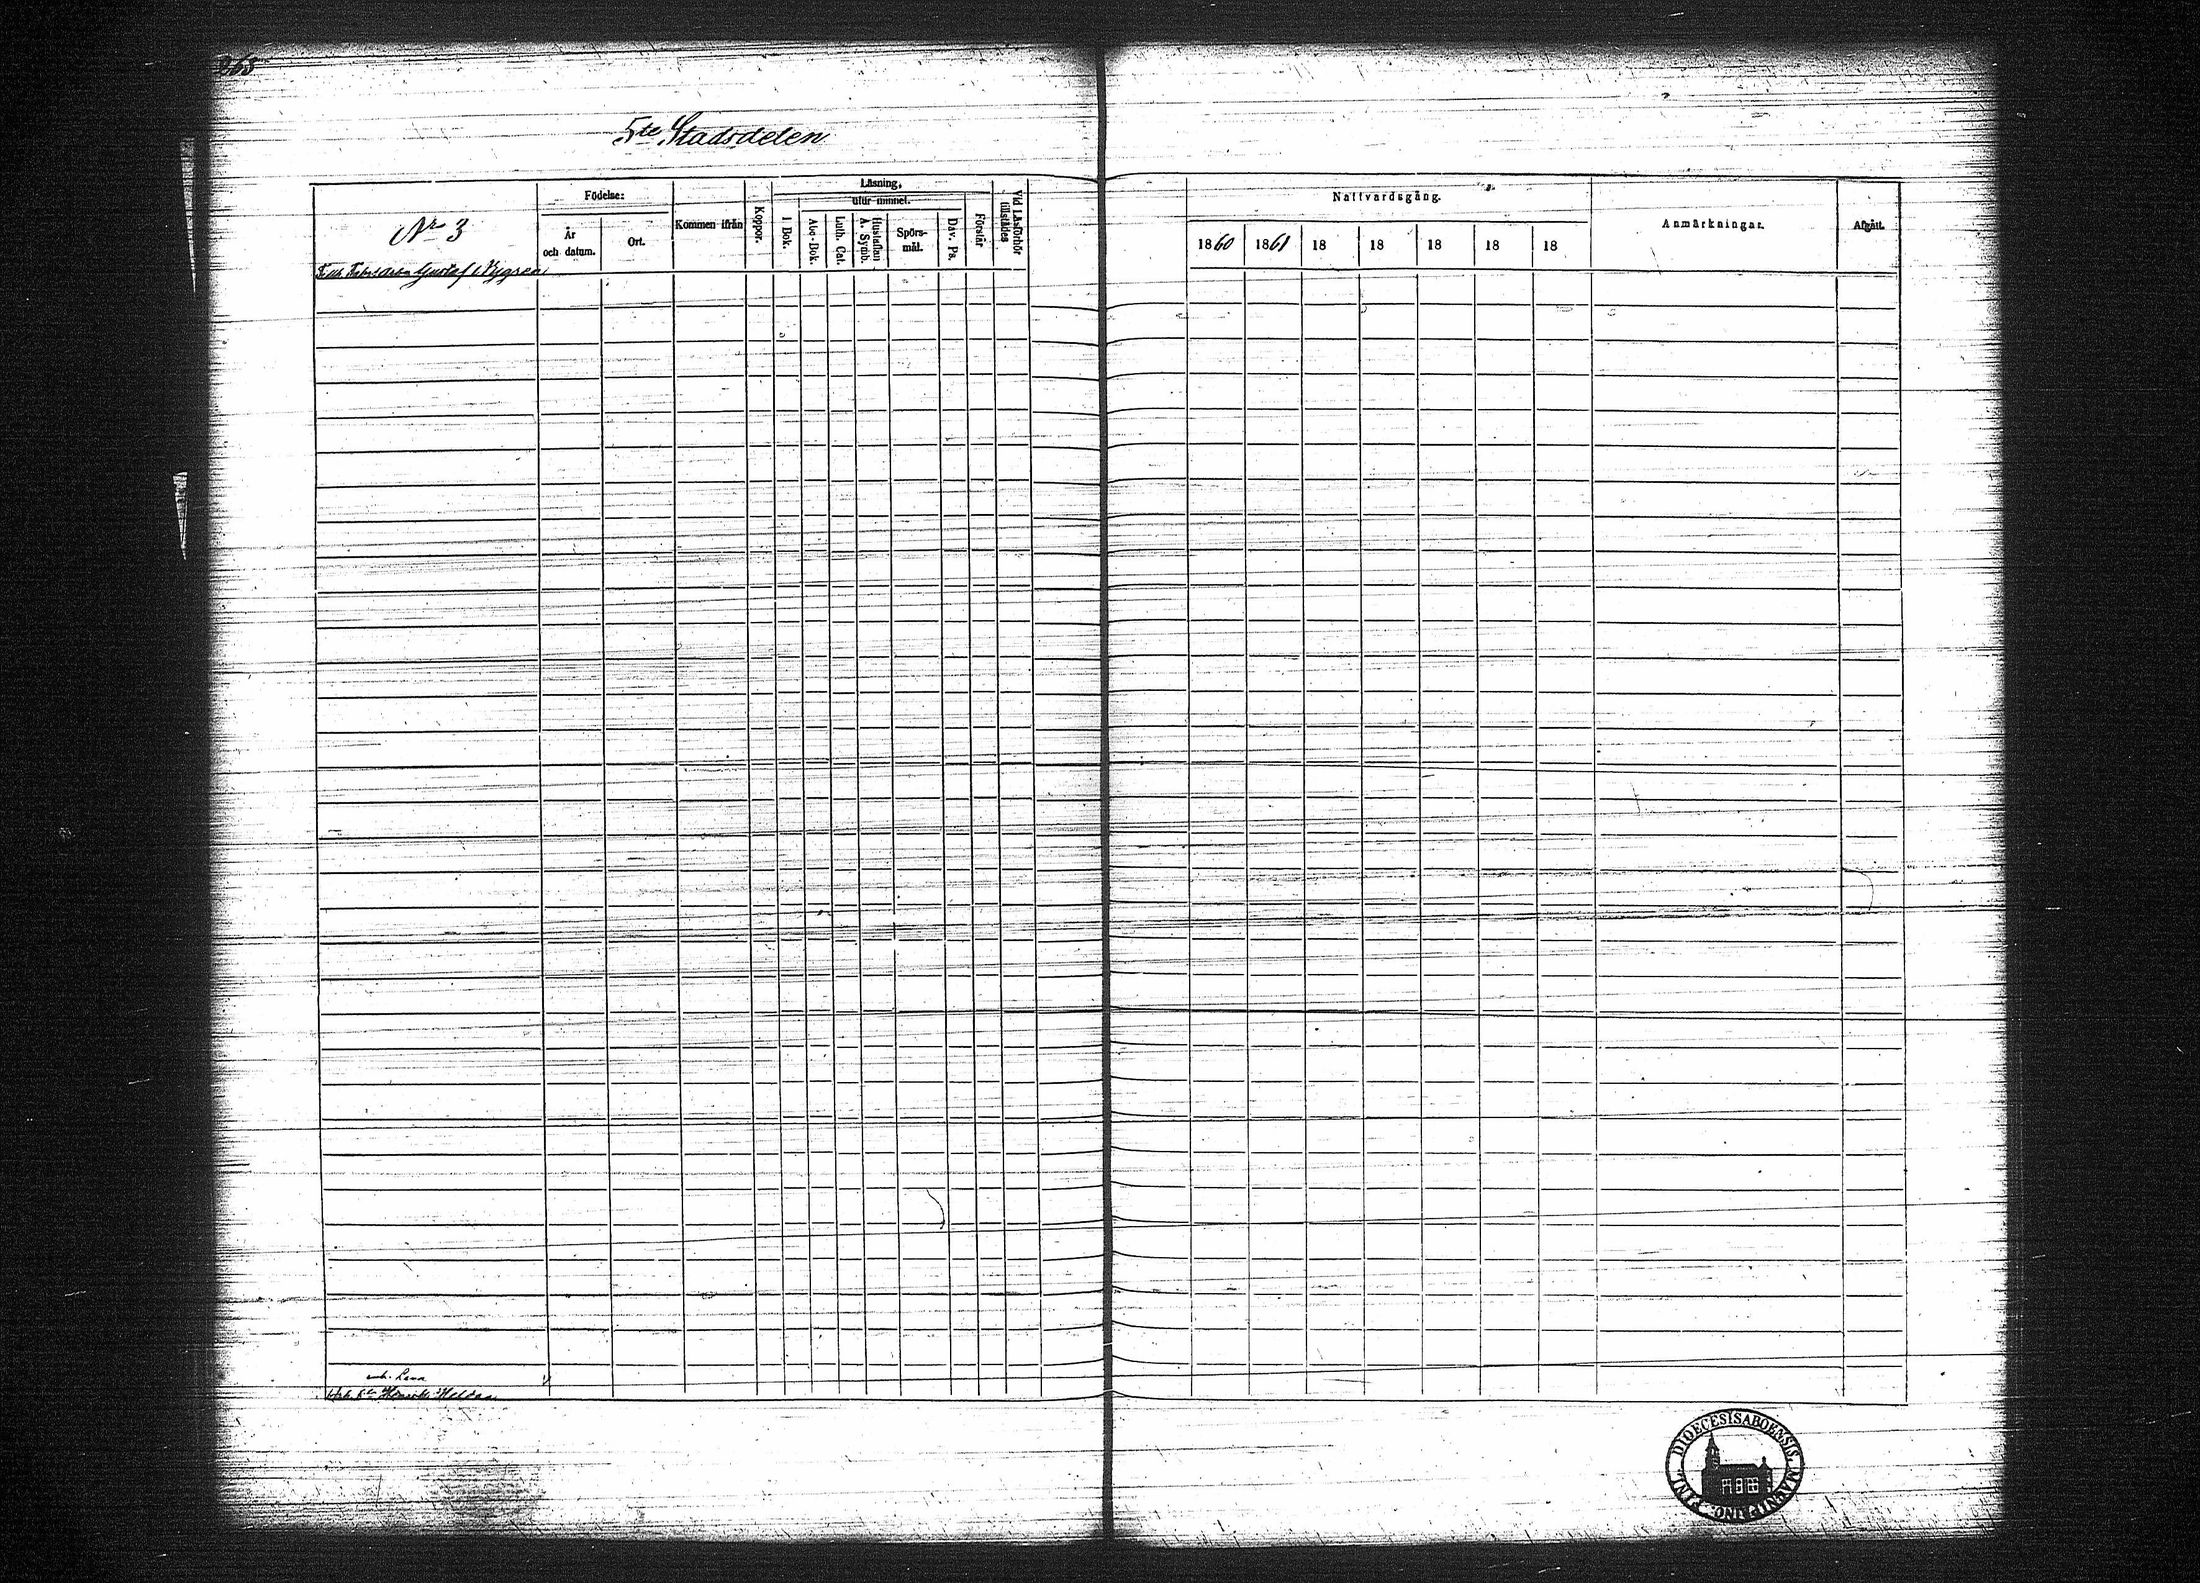 5te Stadsdelen
Nr 3
Födelse:
År och datum.
Ort.
Kommen ifrån
Koppor.
Läsning,
utur minnet.
I Bok.
Abc-Bok.
Luth. Cat.
Hustaflan A. Symb.
Spörsmål.
Dav. Ps.
Förstår
Vid Läsförhör tillstädes
Nattvardsgång.
1860 1861 18 18 18 18 18
Anmärkningar.
Afgått.
Gustaf Nygren
enk. Lena